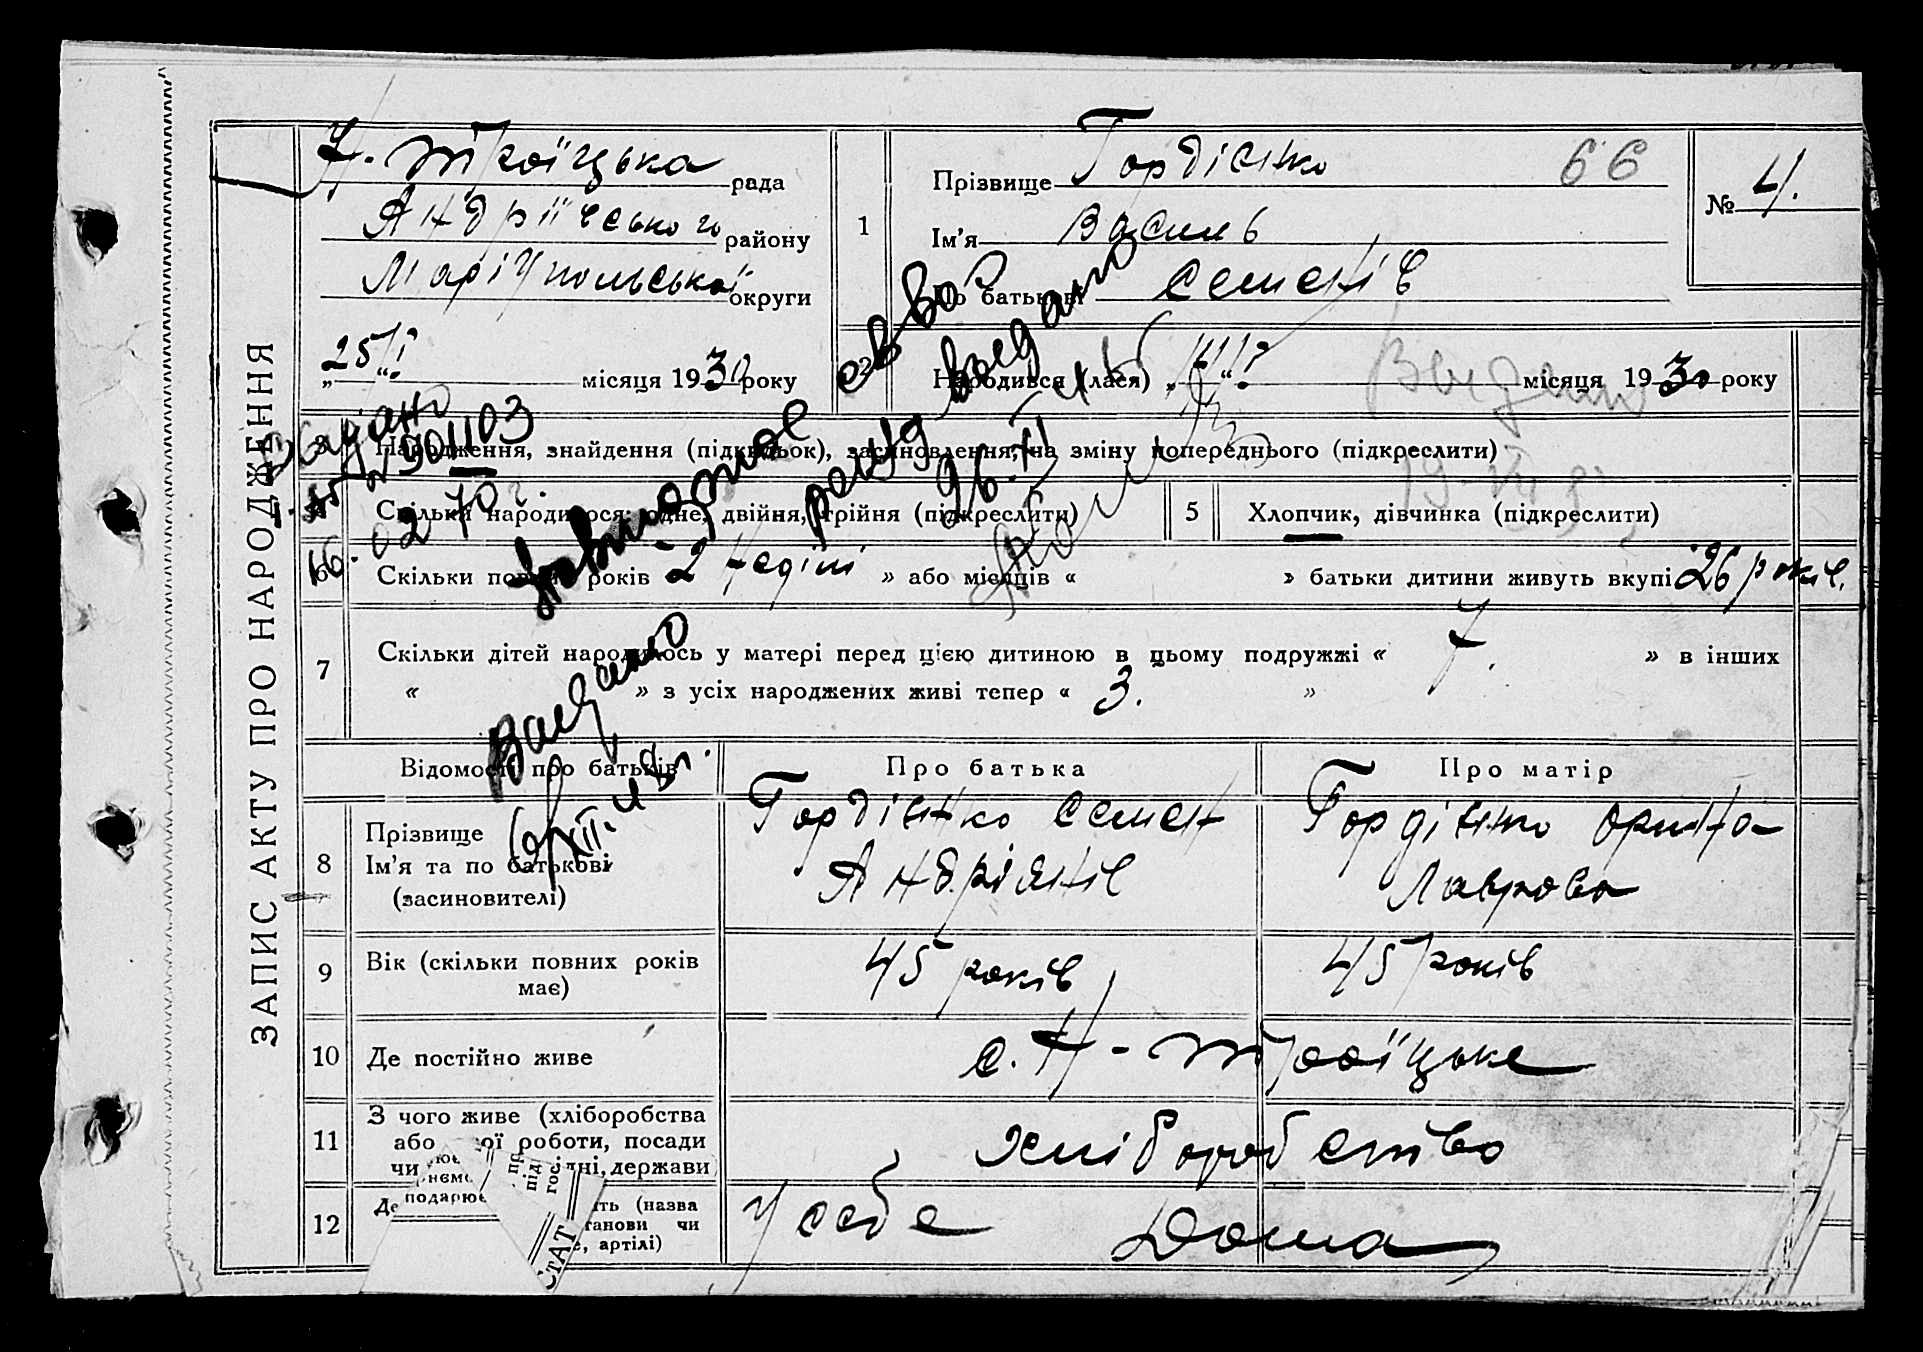 ЗАПИС АКТУ ПРО НАРОДЖЕННЯ
Н.-Троїцька рада
Андріївського району
Маріупольської округи
„25/I“ місяця 1930 року
1
Прізвище Гордієнко 66
Ім'я Василь
По батькові Семенів
№ 4.
2 Народився (лася) „11/I“ місяця 1930 року
Народження, знайдення (підкидьок), засиновлення, на зміну попереднього (підкреслити)
Скільки народилося: одне, двійня, трійня (підкреслити)
5 Хлопчик, дівчинка (підкреслити)
6 Скільки повних років „ 2 неділі » або місяців « » батьки дитини живуть вкупі 26 років.
7 Скільки дітей народилось у матері перед цією дитиною в цьому подружжі « 7. » в інших
« » з усіх народжених живі тепер « 3. »
Видано
901103
16.02 70 г.
повторное св во
Выдано
26.XII
Выдано
XII.
Відомості про батьків Про батька Про матір
8 Прізвище
Ім'я та по батькові
(засиновителі)
Гордієнко Семен
Андріянів
Гордієнко Орина
Лаврова
9 Вік (скільки повних років має)
45 років 45 років
10 Де постійно живе с. Н-Троїцьке
11 З чого живе (хліборобства
або роботи, посади
чи держави
хліборобство
12 (назва
чи
артілі)
У себе Дома
подарює
СТАТ